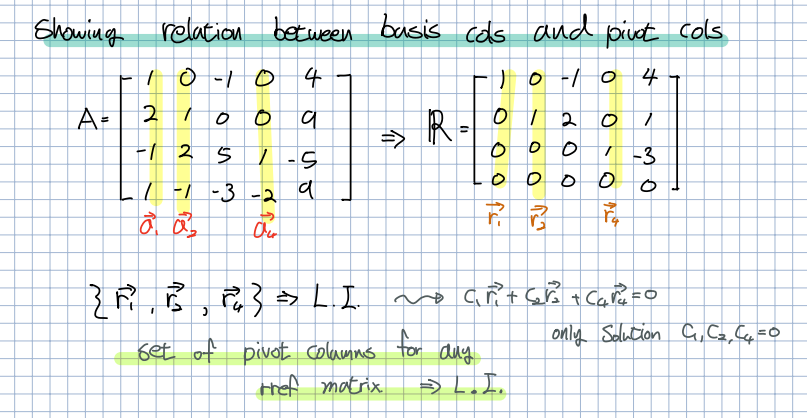 Showing relation between basis cols and pivot cols
A = [ 1 0 -1 0 4 ] ⇒ R = [ 1 0 -1 0 4 ]
[ 2 1 0 0 9 ] [ 0 1 2 0 1 ]
[ -1 2 5 1 -5 ] [ 0 0 0 1 -3 ]
[ 1 -1 -3 -2 9 ] [ 0 0 0 0 0 ]
a⃗₁ a⃗₂ a⃗₄ r⃗₁ r⃗₂ r⃗₄
{ r⃗₁ , r⃗₂ , r⃗₄ } ⇒ L.I. ⇝ C₁r⃗₁ + C₂r⃗₂ + C₄r⃗₄ = 0
only Solution C₁, C₂, C₄ = 0
set of pivot columns for any
rref matrix ⇒ L.I.